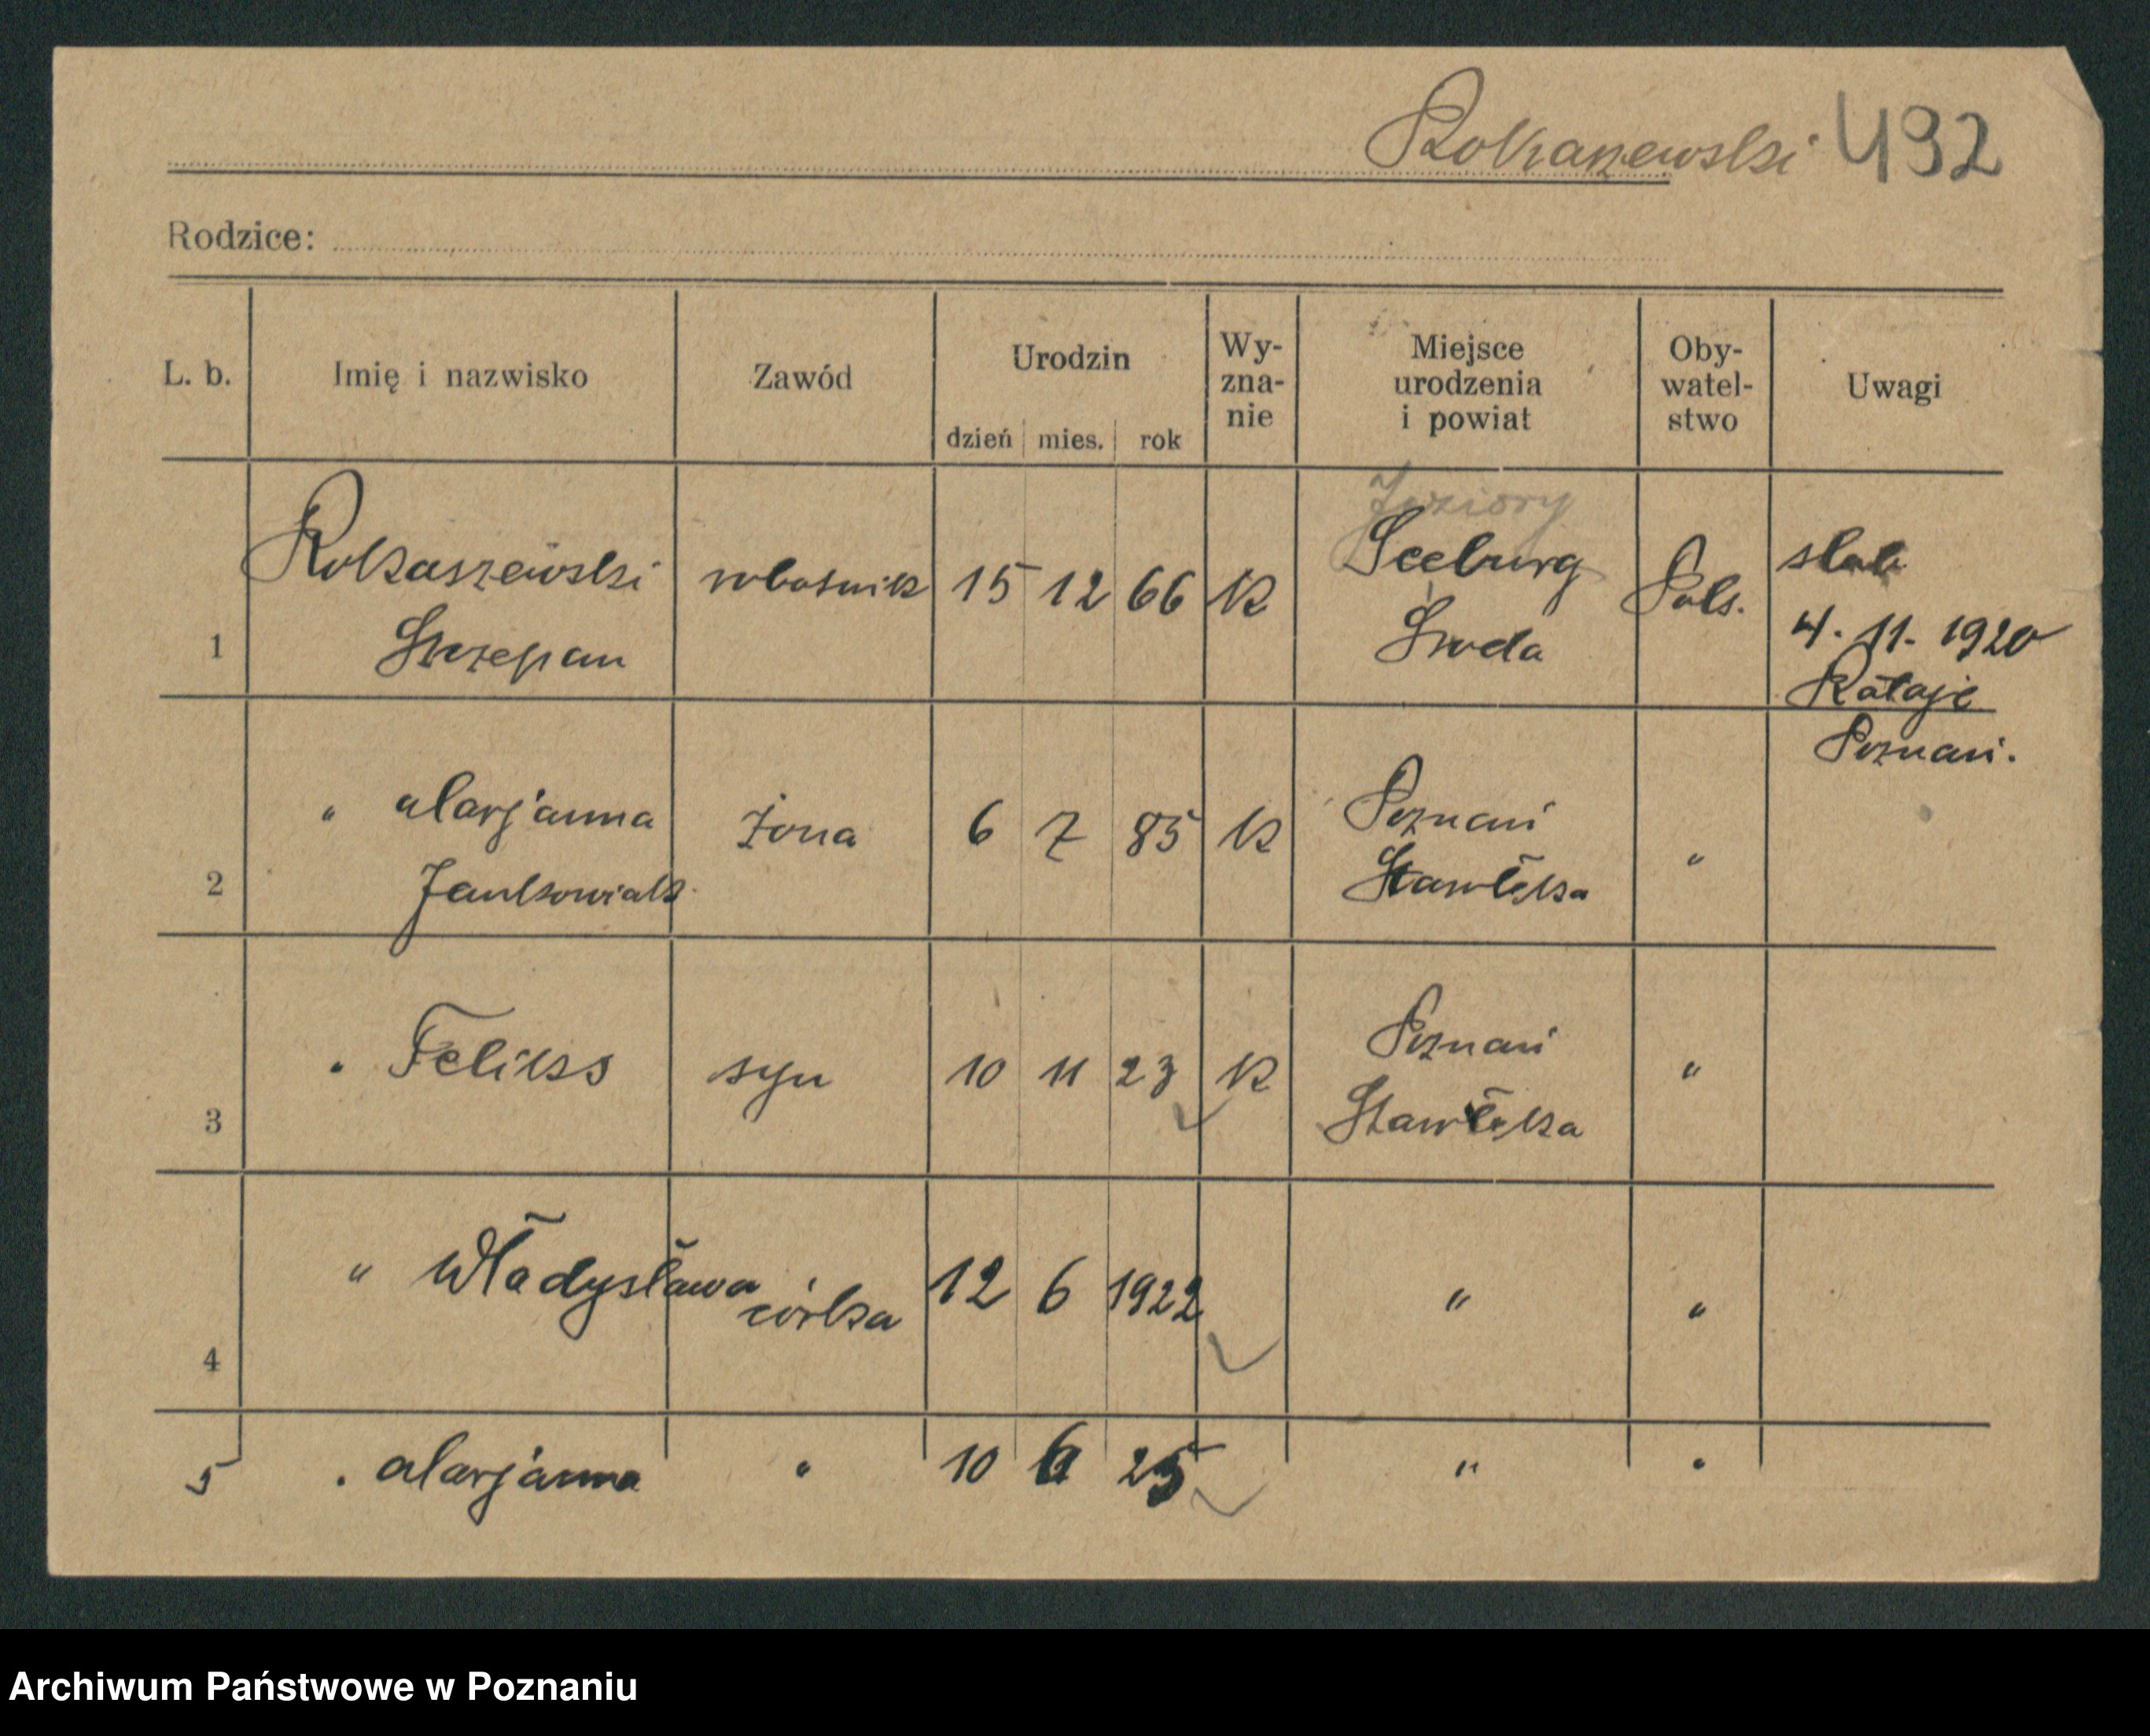 Rokaszewski 492
Rodzice:
L. b. Imię i nazwisko Zawód Urodzin dzień mies. rok Wy-zna-nie Miejsce urodzenia i powiat Oby-watel-stwo Uwagi
Jeziory
1 Rokaszewski Szczepan robotnik 15 12 66 K Seeburg Sroda Pols. slub 4. 11. 1920 Rataje Poznań.
2 " Marjanna Jankowiak żona 6 7 85 K Poznań Stawłęka "
3 " Felikss syn 10 11 23 K Poznań Stawłęka "
4 " Władysława córka 12 6 1922 " "
5 " Marjanna " 10 6 25 " "
Archiwum Państwowe w Poznaniu